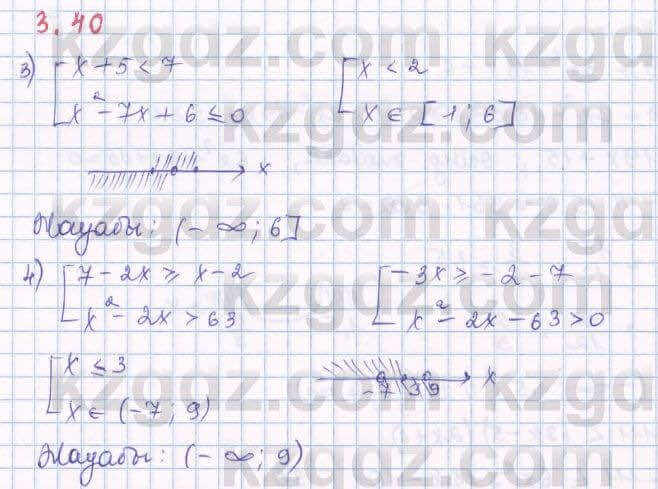 3.40
3) [ x + 5 < 7 [ x < 2
x² - 7x + 6 ≤ 0 x ∈ [1; 6]
x
Жауабы: (- ∞; 6]
4) [ 7 - 2x ≥ x - 2 [ - 3x ≥ - 2 - 7
x² - 2x > 63 x² - 2x - 63 > 0
[ x ≤ 3
x ∈ (-7; 9) -7 3 9 x
Жауабы: (- ∞; 9)
kzgdz.com